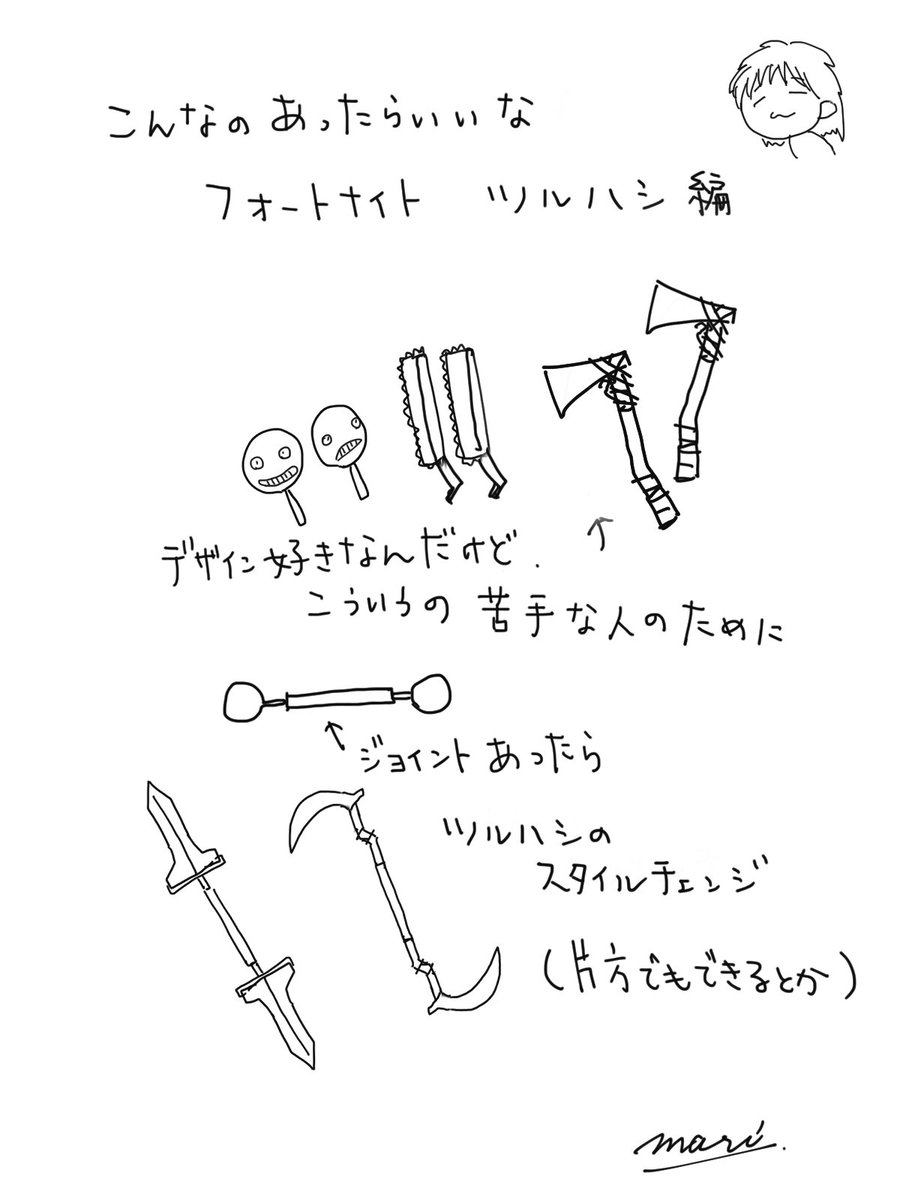 こんなのあったらいいな
フォートナイト ツルハシ編
デザイン好きなんだけど.
こういうの苦手な人のために
ジョイントあったら
ツルハシの
スタイルチェンジ
(片方でもできるとか)
mari.